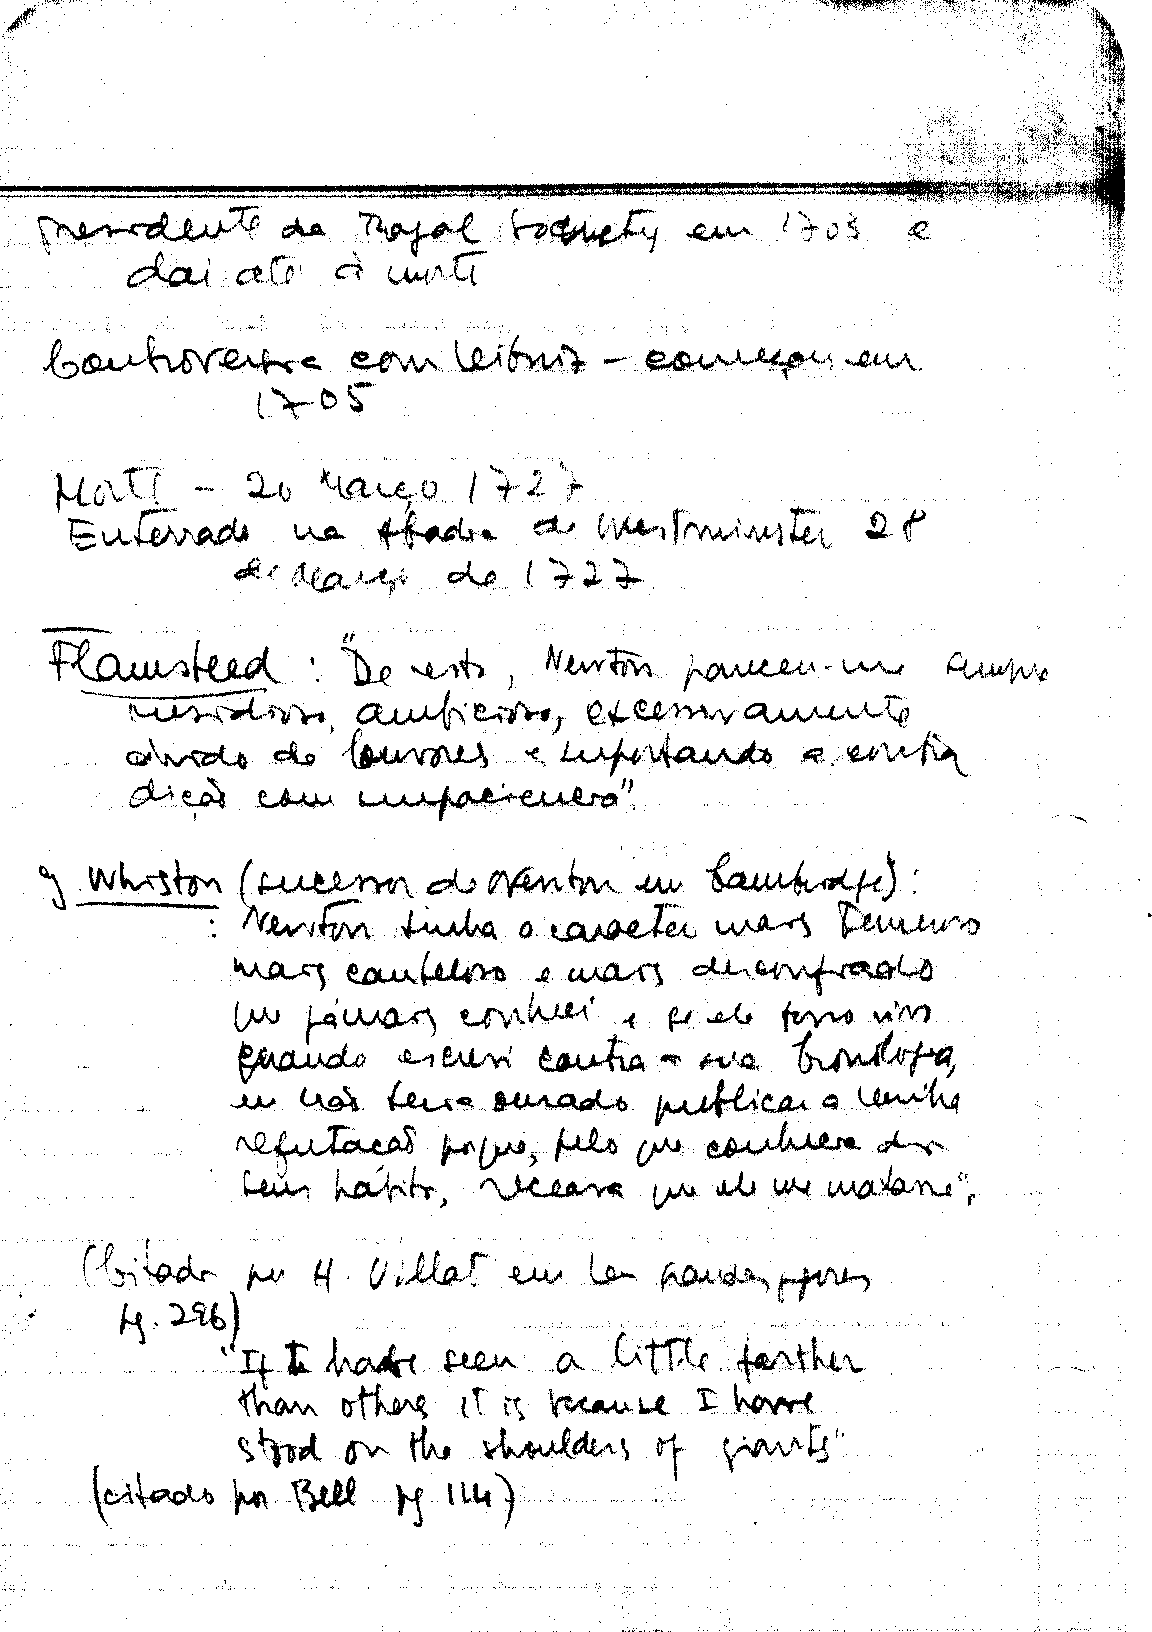 presidente da Royal Society em 1703 e
daí até à morte
Controvérsia com Leibniz – começou em
1705
Morte – 20 Março 1727
Enterrado na Abadia de Westminster 28
de Março de 1727
Flamsteed : "De resto, Newton pareceu-me sempre
insidioso, ambicioso, excessivamente
ávido de louvores e suportando a contra
dição com impaciencia".
Whiston (sucessor de Newton em Cambridge) :
: Newton tinha o caracter mais temeroso
mais cauteloso e mais desconfiado
que jámais conheci e se ele fosse vivo
quando escrevi contra a sua Cronologia,
eu não teria ousado publicar a minha
refutação porque, pelo que conhecia dos
seus hábitos, receava que ele me matasse".
(Citado por H. Villat em Les
pg. 296)
"If I have seen a little farther
than others it is because I have
stood on the shoulders of giants"
(citado por Bell pg 114)